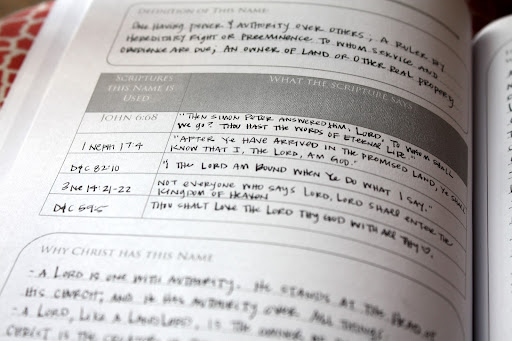 Definition of This Name
One having power & authority over others; a ruler by
hereditary right or preeminence to whom service and
obedience are due; an owner of land or other real property
Scriptures
this Name is
Used
What the Scripture Says
John 6:68
"Then Simon Peter answered him, Lord, to whom shall
we go? Thou hast the words of eternal life."
1 Neph 17:4
"After ye have arrived in the promised land, ye shall
know that I, the Lord, am God."
D&C 82:10
"I the Lord am bound when ye do what I say."
3 Ne 14:21-22
Not everyone who says Lord, Lord shall enter the
kingdom of heaven
D&C 59:5
Thou shalt love the Lord thy God with all thy ♡.
Why Christ has this Name
- A Lord is one with authority. He stands at the head of
His church, and it has authority over all things.
- A Lord, like a landlord, is the owner of
Christ is the creator of